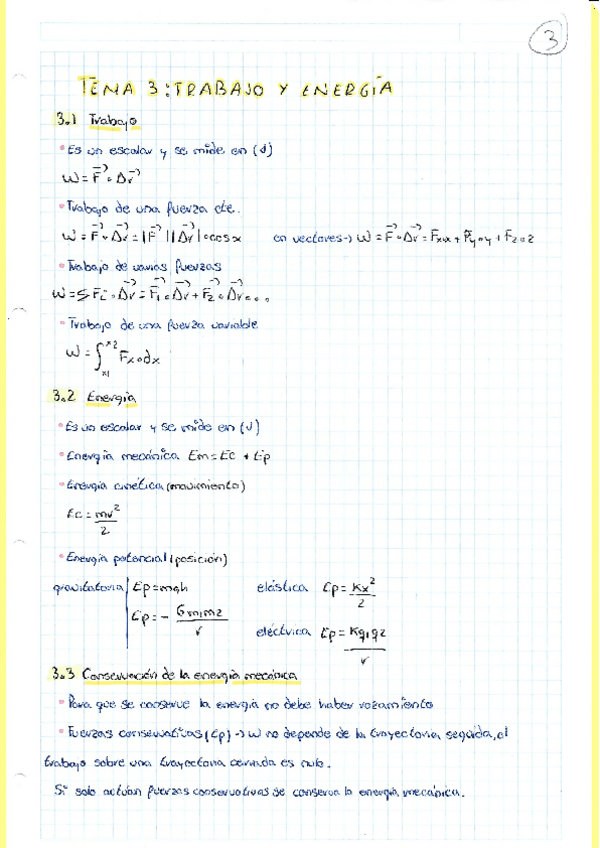 3
TEMA 3: TRABAJO Y ENERGÍA
3.1 Trabajo
• Es un escalar y se mide en (J)
W = F⃗ · Δr⃗
• Trabajo de una fuerza cte.
W = F⃗ · Δr⃗ = |F⃗| |Δr⃗| · cos α en vectores → W = F⃗ · Δr⃗ = Fx·x + Fy·y + Fz·z
• Trabajo de varias fuerzas
W = ΣFi · Δr⃗ = F⃗1 · Δr⃗ + F⃗2 · Δr⃗ ...
• Trabajo de una fuerza variable
W = ∫x1^x2 Fx · dx
3.2 Energía
• Es un escalar y se mide en (J)
• Energía mecánica Em = Ec + Ep
• Energía cinética (movimiento)
Ec = mv²/2
• Energía potencial (posición)
gravitatoria | Ep = mgh elástica Ep = Kx²/2
Ep = - G m1 m2 / r eléctrica Ep = K q1 q2 / r
3.3 Conservación de la energía mecánica
• Para que se conserve la energía no debe haber rozamiento
• Fuerzas conservativas (Ep) → W no depende de la trayectoria seguida, el
trabajo sobre una trayectoria cerrada es nulo.
Si solo actúan fuerzas conservativas se conserva la energía mecánica.